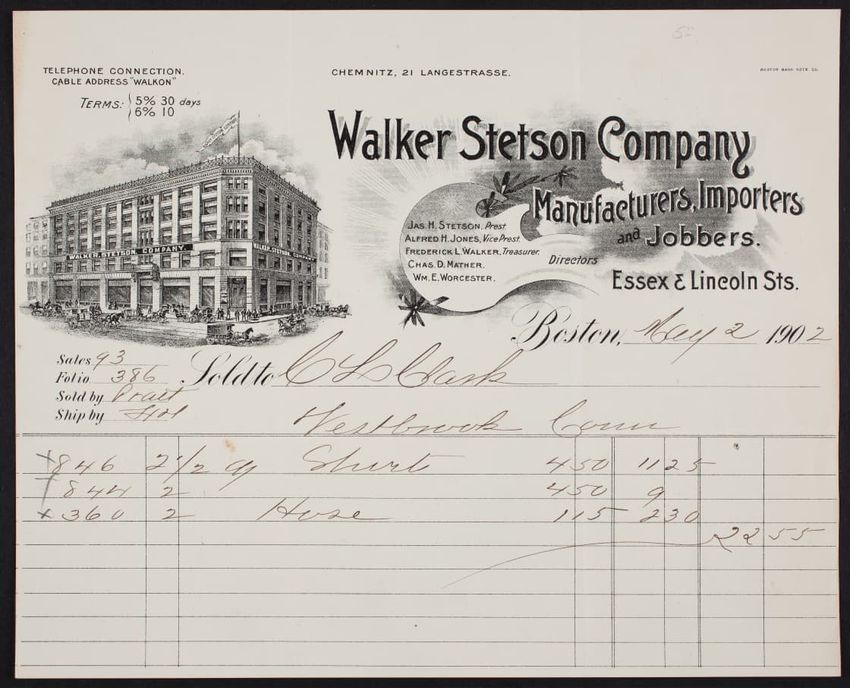 TELEPHONE CONNECTION.
CABLE ADDRESS "WALKON"
TERMS: 5% 30 days
6% 10
CHEMNITZ, 21 LANGESTRASSE.
BOSTON BANK NOTE CO.
Walker Stetson Company
Manufacturers, Importers
and Jobbers.
Essex & Lincoln Sts.
JAS. H. STETSON, Prest.
ALFRED H. JONES, Vice Prest.
FREDERICK L. WALKER, Treasurer.
CHAS. D. MATHER.
WM. E. WORCESTER.
Directors
WALKER, STETSON COMPANY.
WALKER, STETSON COMPANY
Boston, May 2 1902
Sales 93
Folio 386
Sold by
Ship by
Sold to C L Clark
Westbrook Conn
x 846 2 1/2 Shirts 450 1125
844 2 450 9
x 360 2 Hose 115 230
22 55